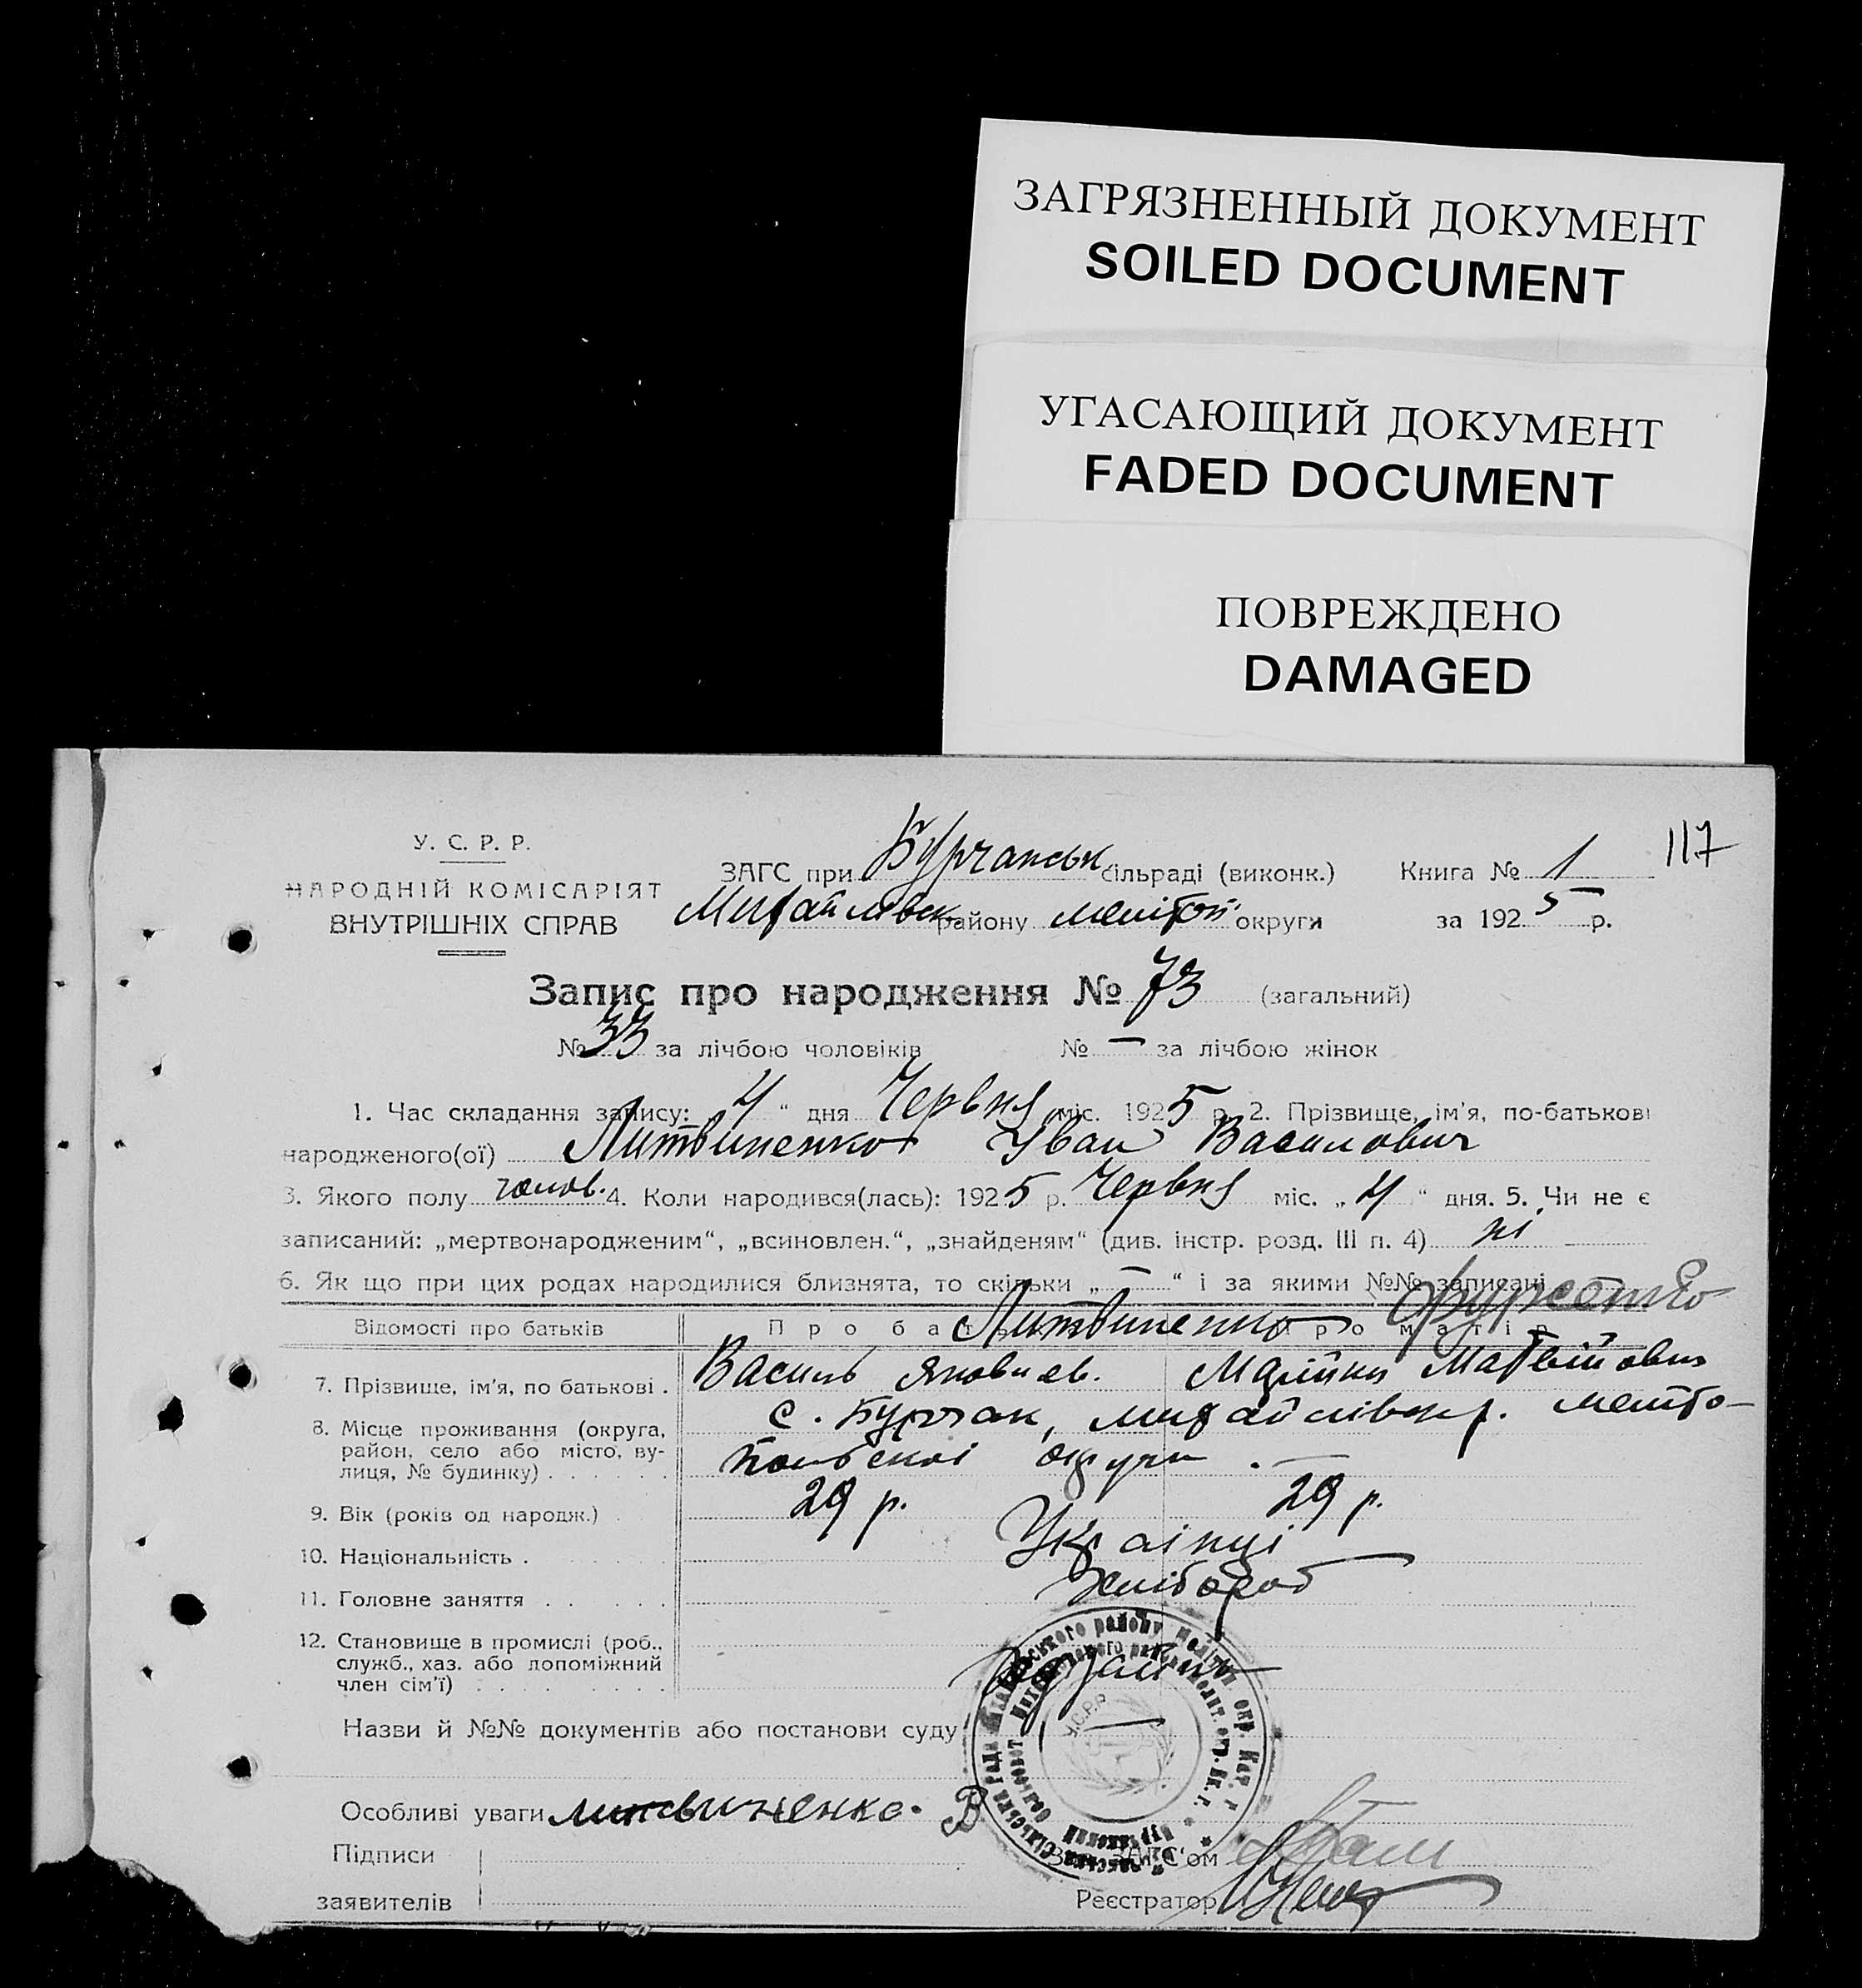 ЗАГРЯЗНЕННЫЙ ДОКУМЕНТ
SOILED DOCUMENT
УГАСАЮЩИЙ ДОКУМЕНТ
FADED DOCUMENT
ПОВРЕЖДЕНО
DAMAGED
117
У. С. Р. Р.
НАРОДНІЙ КОМІСАРІЯТ
ВНУТРІШНІХ СПРАВ
ЗАГС при Бурчанськ сільраді (виконк.) Книга № 1
Михайлівськ району меліtоп. округи за 1925 р.
Запис про народження № 73 (загальний)
№ 33 за лічбою чоловіків № — за лічбою жінок
1. Час складання запису: 4 " дня Червня міс. 1925 р. 2. Прізвище, ім'я, по-батькові
народженого(ої) Литвиненко Іван Василович
3. Якого полу чолов. 4. Коли народився(лась): 1925 р. Червня міс. „ 4 " дня. 5. Чи не є
записаний: „мертвонародженим", „всиновлен.", „знайденям" (див. інстр. розд. III п. 4) ні
6. Як що при цих родах народилися близнята, то скільки „ — " і за якими №№ записані
Відомості про батьків Про бать Литвиненко Про матір
7. Прізвище, ім'я, по батькові . Василь Яковлев. Матвійовна
8. Місце проживання (округа, с. Бурчак, михайлівськ р. меліто-
район, село або місто, ву- польскої округи . —
лиця, № будинку) . . . . . .
9. Вік (років од народж.) . 29 р. 29 р.
10. Національність . Українці
11. Головне заняття . . . . . Хлібороб
12. Становище в промислі (роб.,
служб., хаз. або допоміжний
член сім'ї) . . . . . . . . .
У.С.Р.Р.
Назви й №№ документів або постанови суду
Особливі уваги литвиненко. В
Підписи
заявителів
Зав. ЗАГС'ом
Реєстратор